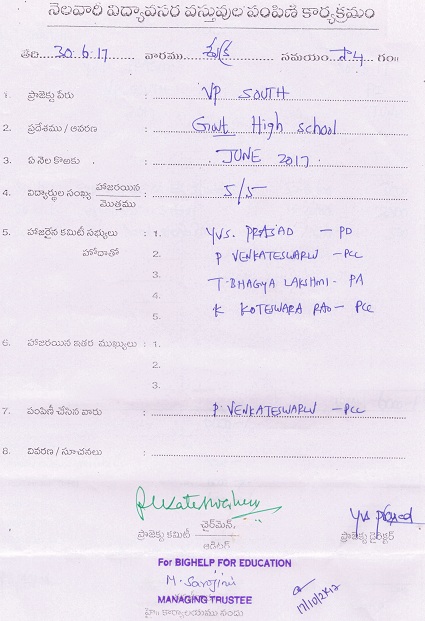 నెలవారి విద్యావసర వస్తువుల పంపిణి కార్యక్రమం
తేది. 30.6.17 వారము శుక్ర సమయం. సా 4 గం॥
1. ప్రాజెక్టు పేరు : VP SOUTH
2. ప్రదేశము / ఆవరణ : Govt High school
3. ఏ నెల కొఱకు : JUNE 2017
4. విద్యార్థుల సంఖ్య హాజరయిన / మొత్తము : 5/5
5. హాజరైన కమిటీ సభ్యులు : 1. YVS. PRASAD - PD
హోదాతో 2. P VENKATESWARLU - PCC
3. T. BHAGYA LAKSHMI - PA
4. K KOTESWARA RAO - PCC
5.
6. హాజరయిన ఇతర ముఖ్యులు : 1.
2.
3.
7. పంపిణీ చేసిన వారు : P VENKATESWARLU - PCC
8. వివరణ / సూచనలు :
yvs prasad
ప్రాజెక్టు కమిటీ ఛైర్మెన్ / ఆడిటర్ ప్రాజెక్టు డైరెక్టర్
For BIGHELP FOR EDUCATION
M. Sarojini
MANAGING TRUSTEE
కార్యాలయము నందు